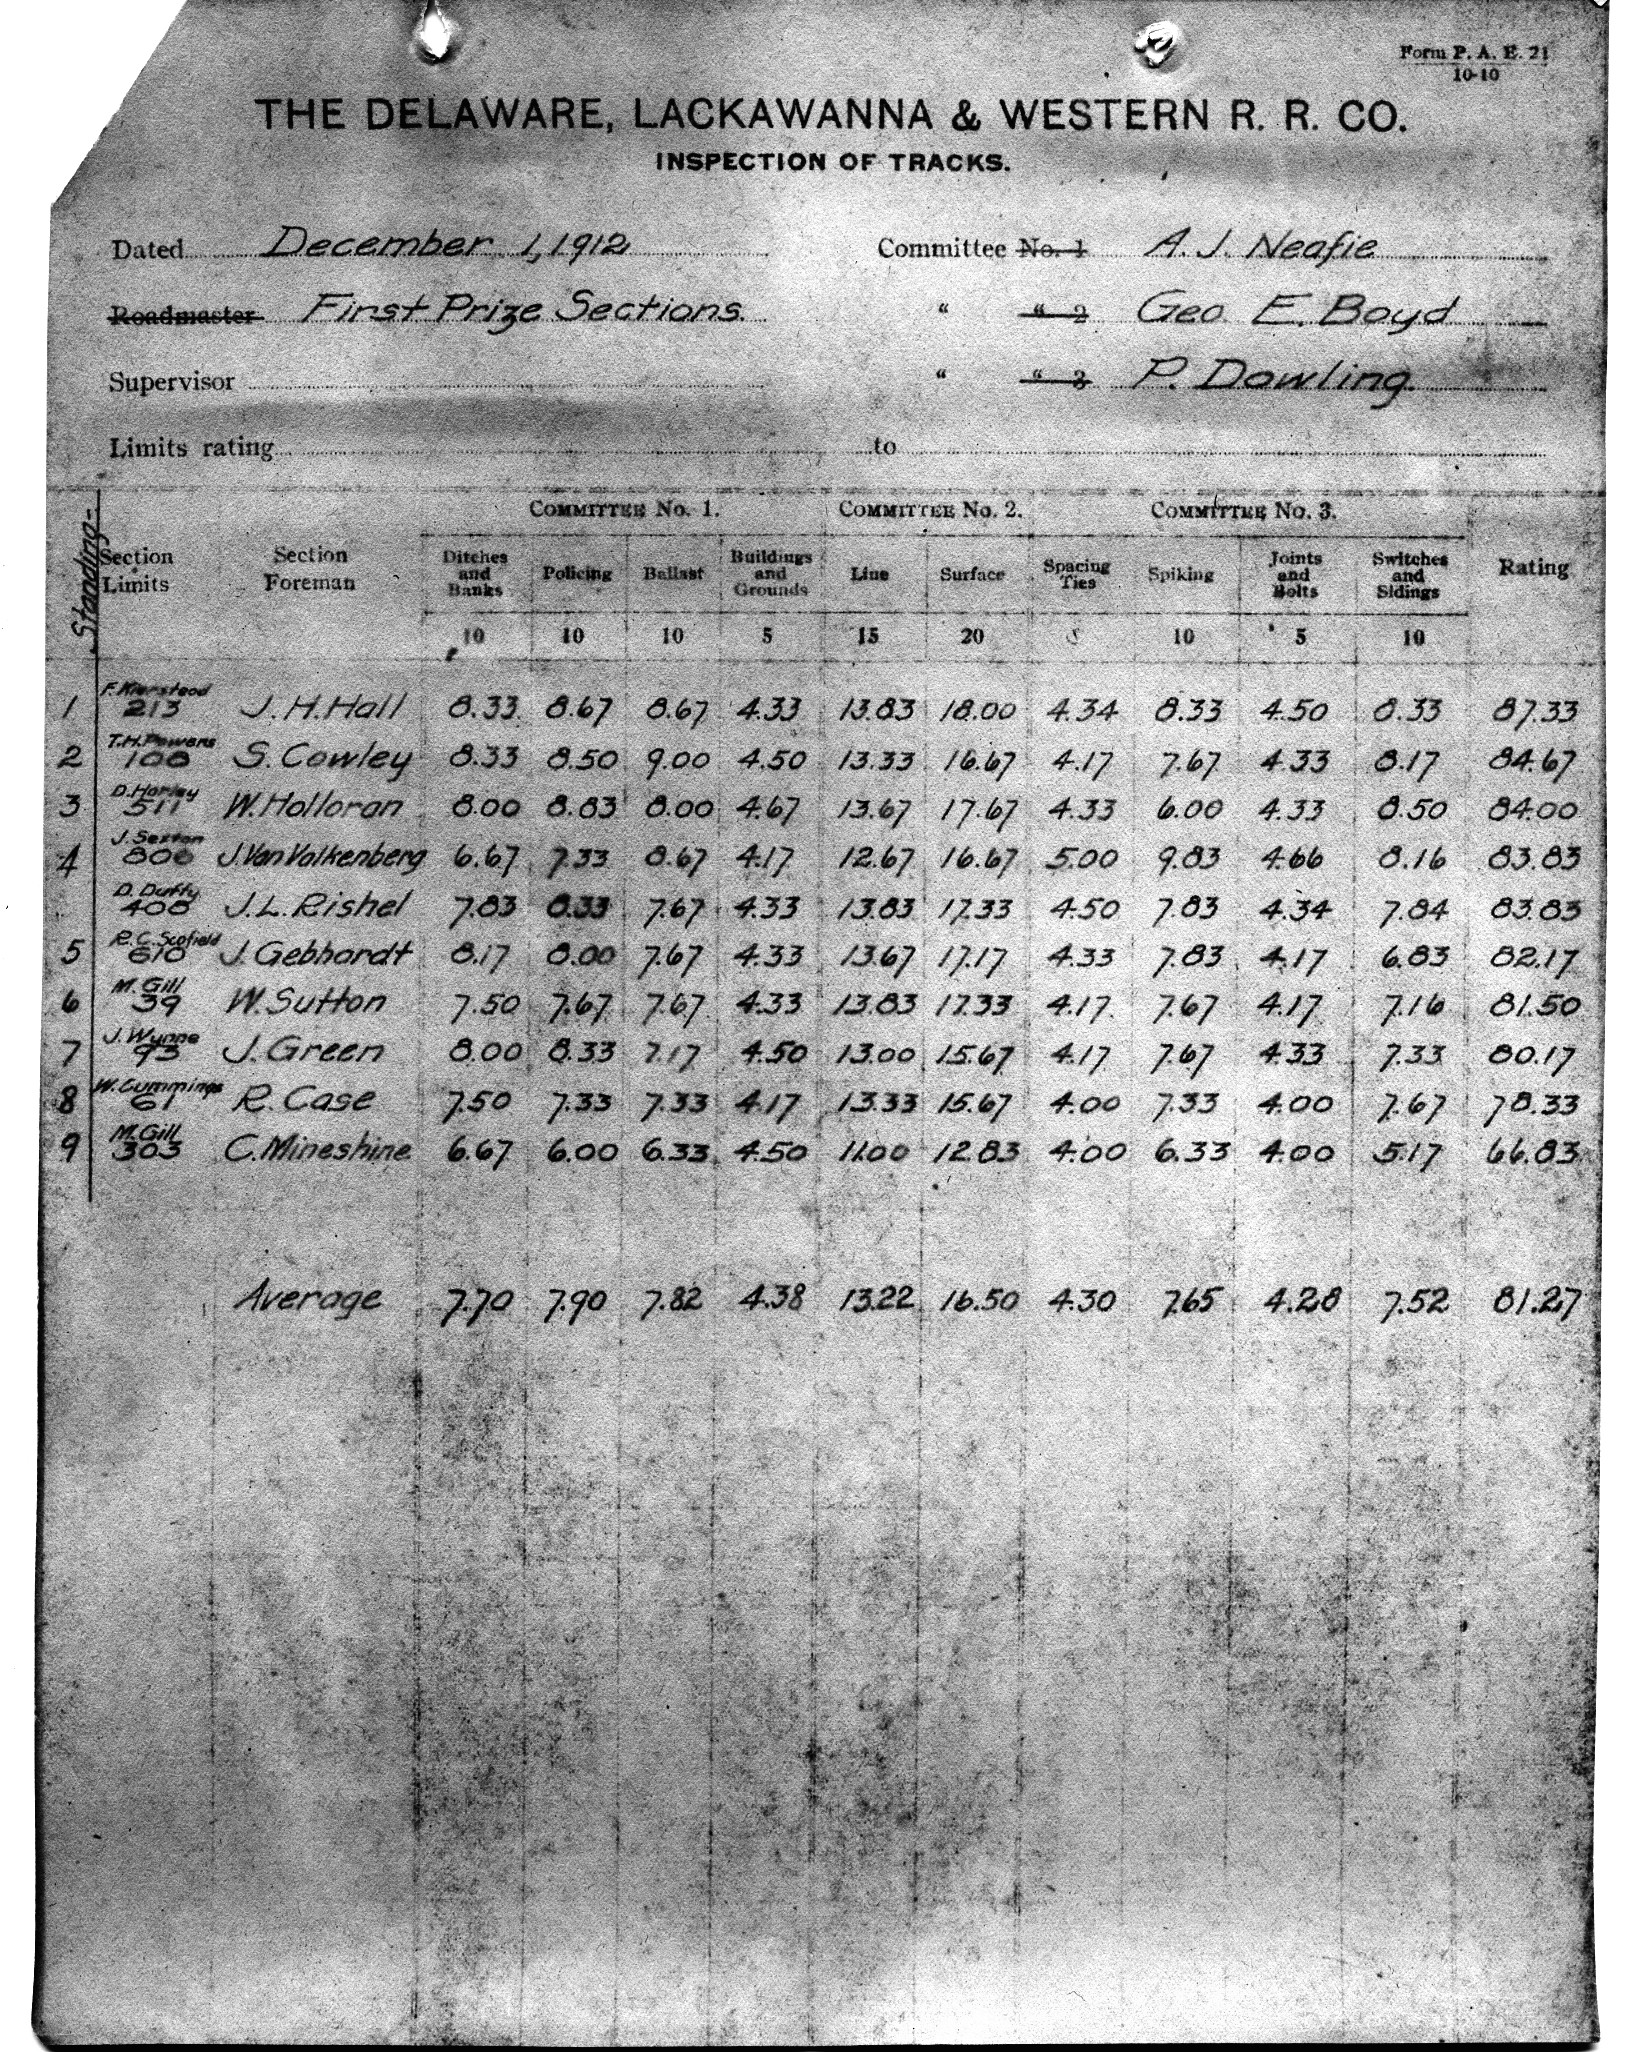 Form P. A. E. 21
10-10
THE DELAWARE, LACKAWANNA & WESTERN R. R. CO.
INSPECTION OF TRACKS.
Dated December 1, 1912 Committee No. 1 A. J. Neafie
Roadmaster First Prize Sections. “ “ 2 Geo. E. Boyd
Supervisor “ “ 3 P. Dowling.
Limits rating to
Standing-
COMMITTEE No. 1. COMMITTEE No. 2. COMMITTEE No. 3.
Section Limits Section Foreman Ditches and Banks Policing Ballast Buildings and Grounds Line Surface Spacing Ties Spiking Joints and Bolts Switches and Sidings Rating
10 10 10 5 15 20 10 5 10
F. Kierstead
1 213 J. H. Hall 8.33 8.67 8.67 4.33 13.83 18.00 4.34 8.33 4.50 8.33 87.33
T.H. Powers
2 108 S. Cowley 8.33 8.50 9.00 4.50 13.33 16.67 4.17 7.67 4.33 8.17 84.67
D.
3 511 W. Holloran 8.00 8.83 8.00 4.67 13.67 17.67 4.33 6.00 4.33 8.50 84.00
J. Sexton
4 J. Van Valkenberg 6.67 7.33 8.67 4.17 12.67 16.67 5.00 9.83 4.66 8.16 83.83
D. Duffy
408 J. L. Rishel 7.83 8.33 7.67 4.33 13.83 17.33 4.50 7.83 4.34 7.84 83.83
R. C. Scofield
5 610 J. Gebhardt 8.17 8.00 7.67 4.33 13.67 17.17 4.33 7.83 4.17 6.83 82.17
M. Gill
6 39 W. Sutton 7.50 7.67 7.67 4.33 13.83 17.33 4.17 7.67 4.17 7.16 81.50
J. Wynne
7 93 J. Green 8.00 8.33 7.17 4.50 13.00 15.67 4.17 7.67 4.33 7.33 80.17
W. Cummings
8 61 R. Case 7.50 7.33 7.33 4.17 13.33 15.67 4.00 7.33 4.00 7.67 78.33
M. Gill
9 303 C. Mineshine 6.67 6.00 6.33 4.50 11.00 12.83 4.00 6.33 4.00 5.17 66.83
Average 7.70 7.90 7.82 4.38 13.22 16.50 4.30 7.65 4.28 7.52 81.27